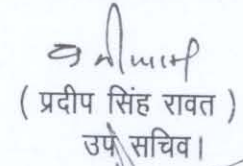 ( प्रदीप सिंह रावत )
उप सचिव।